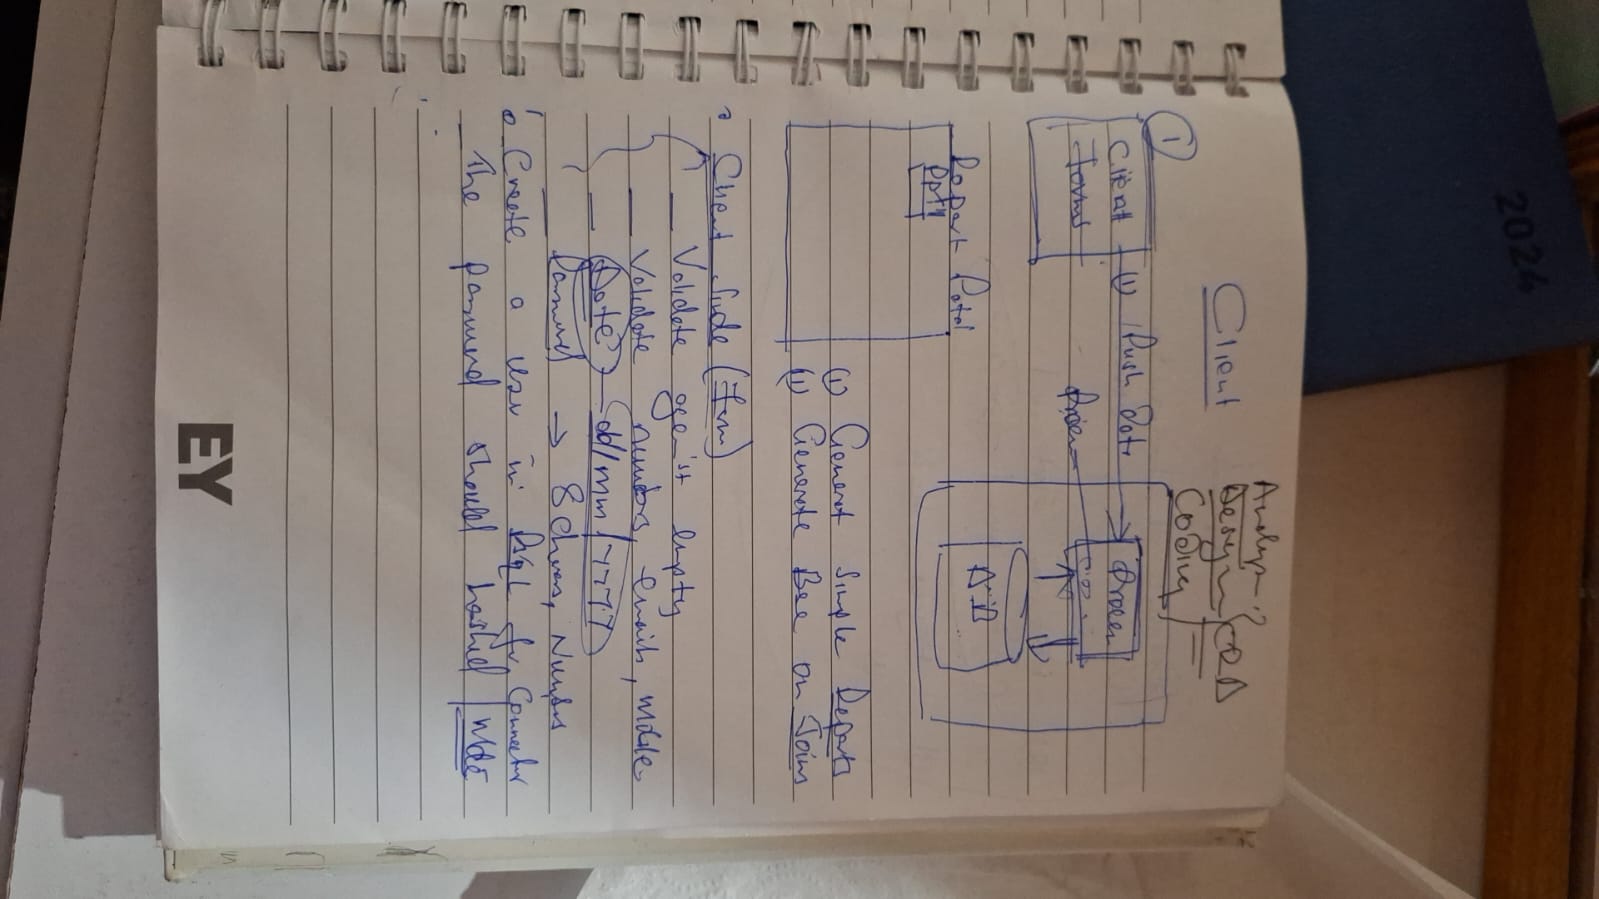 2024
Client
Design
Coding
①
Client
Forms
(1) Push Data
DB
Report Portal
Rpt1
(1) Generat Simple Reports
(1) Generate Bse on Joins
Client Side (Form)
— Validate against empty
— Validate numbers, emails, mobile
— Date — dd/mm/yyyy
— Password → 8 Chars, Numbers
Create a user in PSQL for Connector
The password should hashed
EY